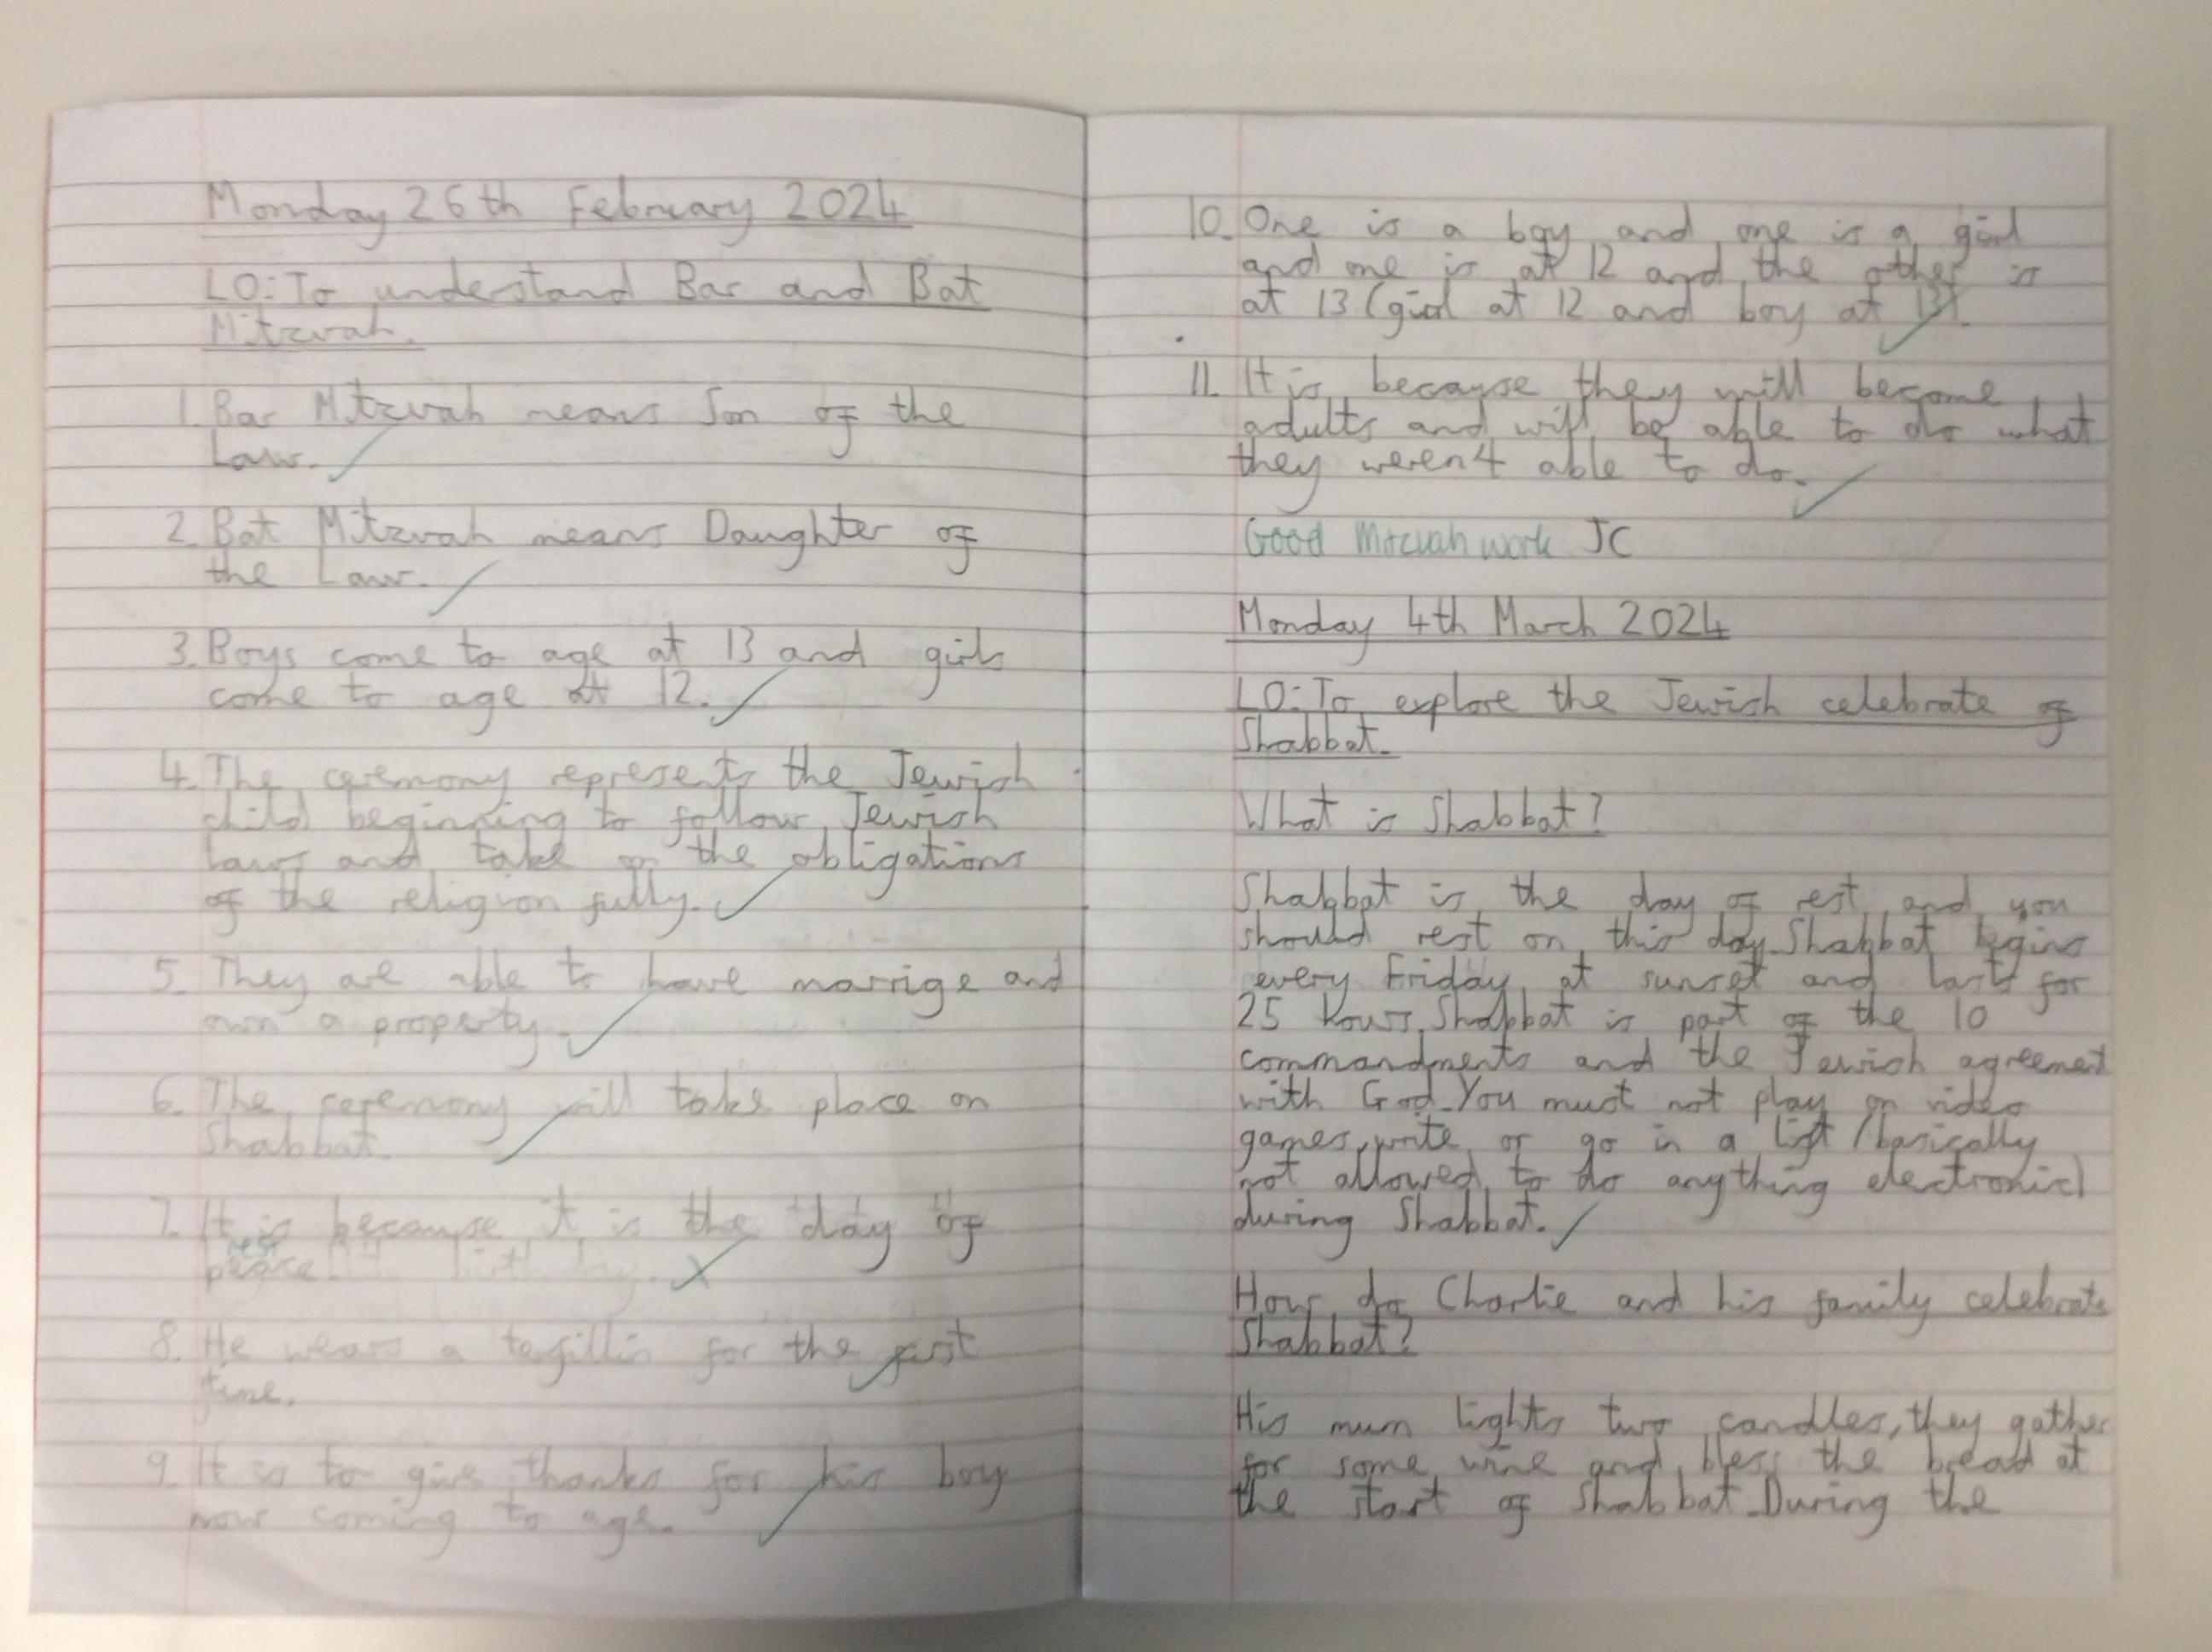 Monday 26th February 2024
LO: To understand Bar and Bat
Mitzvah.
1. Bar Mitzvah means Son of the
Law.
2. Bat Mitzvah means Daughter of
the Law.
3. Boys come to age at 13 and girls
come to age at 12.
4. The ceremony represents the Jewish
child beginning to follow Jewish
laws and take on the obligations
of the religion fully.
5. They are able to have marrige and
own a property.
6. The ceremony will take place on
Shabbat.
7. It is because it is the "day of
rest
peace
8. He wears a tefillin for the first
time.
9. It is to give thanks for his boy
now coming to age.
10. One is a boy and one is a girl
and one is at 12 and the other is
at 13 (girl at 12 and boy at 13).
11. It is because they will become
adults and will be able to do what
they weren't able to do.
Good Mitzvah work JC
Monday 4th March 2024
LO: To explore the Jewish celebrate of
Shabbat.
What is Shabbat?
Shabbat is the day of rest and you
should rest on this day. Shabbat begins
every Friday at sunset and lasts for
25 hours. Shabbat is part of the 10
commandments and the Jewish agreement
with God. You must not play on video
games, write or go in a lift (basically
not allowed to do anything electronic)
during Shabbat.
How do Charlie and his family celebrate
Shabbat?
His mum lights two candles, they gather
for some wine and bless the bread at
the start of Shabbat. During the